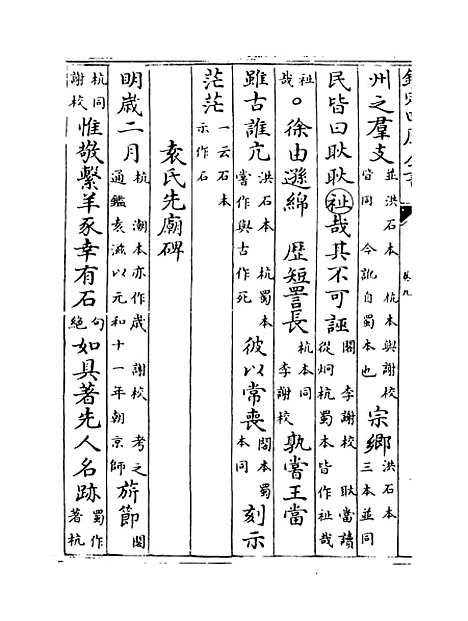 欽定四庫全書 卷九
州之羣支並洪石本 杭本與謝校皆同 今訛自蜀本也宗鄉洪石本三本並同
民皆曰耿耿祉哉其不可誣閣 李謝校 耿當讀從炯杭蜀本皆作祉哉
祉哉。徐由遜綿 歷短詈長杭本同李謝校孰嘗王當
雖古誰亢洪石本 杭蜀本嘗作與古作死彼以常喪閣本蜀本同刻示
茫茫一云石本示作石
袁氏先廟碑
明歲二月杭 潮本亦作歲 謝校 考之通鑑袁滋以元和十一年朝京師旂節閣
杭同謝校惟敬繫羊豕幸有石句絕如具著先人名跡蜀作著杭